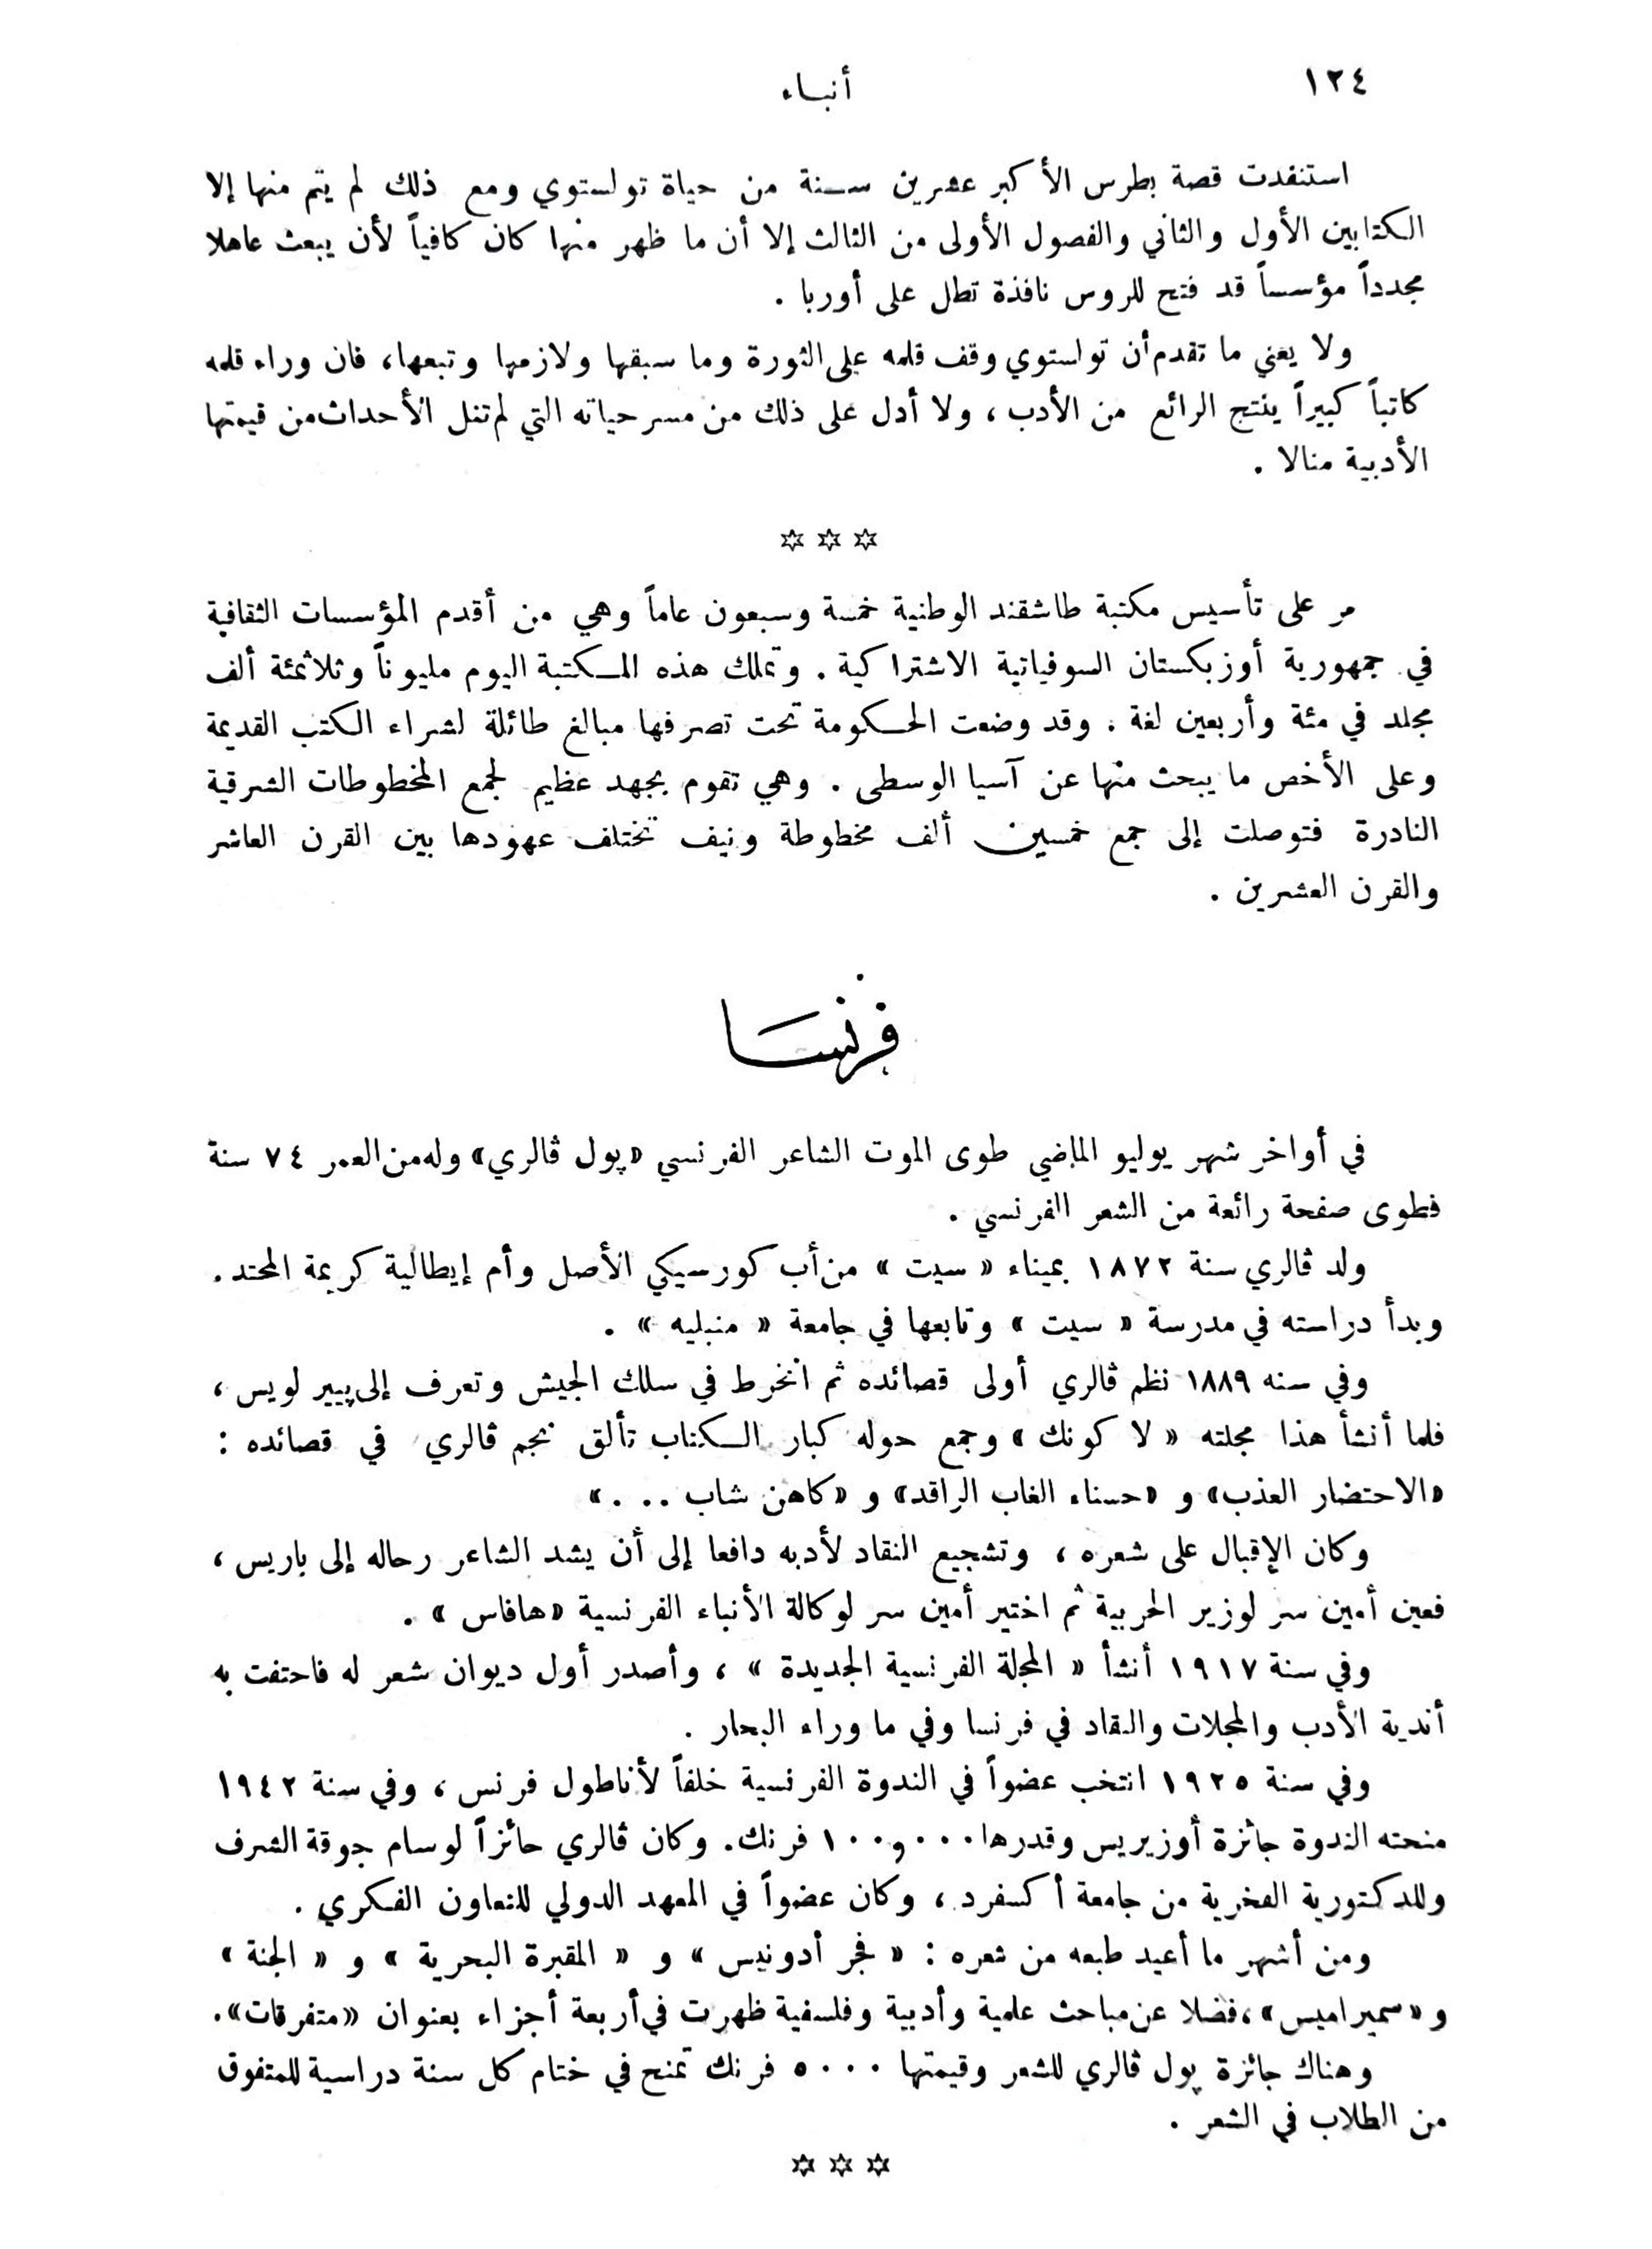 ١٢٤
أنباء
استنفدت قصة بطرس الأكبر عشرين سنة من حياة تولستوي ومع ذلك لم يتم منها إلا
الكتابين الأول والثاني والفصول الأولى من الثالث إلا أن ما ظهر منها كان كافياً لأن يبعث عاهلا
مجدداً مؤسساً قد فتح للروس نافذة تطل على أوربا .
ولا يعني ما تقدم أن تولستوي وقف قلمه على الثورة وما سبقها ولازمها وتبعها، فان وراء قلمه
كاتباً كبيراً ينتج الرائع من الأدب ، ولا أدل على ذلك من مسرحياته التي لم تنل الأحداث من قيمتها
الأدبية منالا .
☆ ☆ ☆
مر على تأسيس مكتبة طاشقند الوطنية خمسة وسبعون عاماً وهي من أقدم المؤسسات الثقافية
في جمهورية أوزبكستان السوفياتية الاشتراكية . وتملك هذه المكتبة اليوم مليوناً وثلاثمئة ألف
مجلد في مئة وأربعين لغة . وقد وضعت الحكومة تحت تصرفها مبالغ طائلة لشراء الكتب القديمة
وعلى الأخص ما يبحث منها عن آسيا الوسطى . وهي تقوم بجهد عظيم لجمع المخطوطات الشرقية
النادرة فتوصلت إلى جمع خمسين ألف مخطوطة ونيف تختلف عهودها بين القرن العاشر
والقرن العشرين .
فرنسا
في أواخر شهر يوليو الماضي طوى الموت الشاعر الفرنسي «پول ڤالري» وله من العمر ٧٤ سنة
فطوى صفحة رائعة من الشعر الفرنسي .
ولد ڤالري سنة ١٨٧٢ بميناء « سيت » من أب كورسيكي الأصل وأم إيطالية كريمة المحتد .
وبدأ دراسته في مدرسة « سيت » وتابعها في جامعة « منبليه » .
وفي سنه ١٨٨٩ نظم ڤالري أولى قصائده ثم انخرط في سلك الجيش وتعرف إلى پيير لويس ،
فلما أنشأ هذا مجلته « لا كونك » وجمع حوله كبار الكتاب تألق نجم ڤالري في قصائده :
«الاحتضار العذب» و «حسناء الغاب الراقد» و «كاهن شاب . . . »
وكان الإقبال على شعره ، وتشجيع النقاد لأدبه دافعا إلى أن يشد الشاعر رحاله إلى باريس ،
فعين أمين سر لوزير الحربية ثم اختير أمين سر لوكالة الأنباء الفرنسية «هافاس » .
وفي سنة ١٩١٧ أنشأ « المجلة الفرنسية الجديدة » ، وأصدر أول ديوان شعر له فاحتفت به
أندية الأدب والمجلات والنقاد في فرنسا وفي ما وراء البحار .
وفي سنة ١٩٢٥ انتخب عضواً في الندوة الفرنسية خلفاً لأناطول فرنس ، وفي سنة ١٩٤٢
منحته الندوة جائزة أوزيريس وقدرها ١٠٠و٠٠٠ فرنك. وكان ڤالري حائزاً لوسام جوقة الشرف
وللدكتورية الفخرية من جامعة أكسفرد ، وكان عضواً في المعهد الدولي للتعاون الفكري .
ومن أشهر ما أعيد طبعه من شعره : « فجر أدونيس » و « المقبرة البحرية » و « الجنة »
و «سميراميس» ،فضلا عن مباحث علمية وأدبية وفلسفية ظهرت في أربعة أجزاء بعنوان «متفرقات».
وهناك جائزة پول ڤالري للشعر وقيمتها ٥٠٠٠ فرنك تمنح في ختام كل سنة دراسية للمتفوق
من الطلاب في الشعر .
☆ ☆ ☆